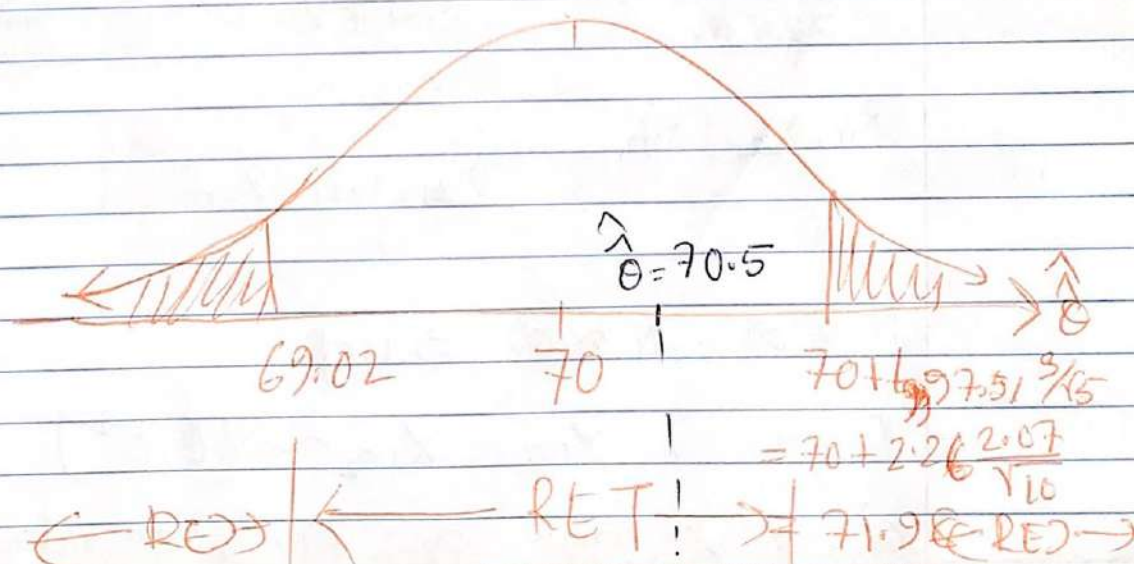 θ̂̂ = 70.5
θ̂̂
69.02 70 70 + t₉, 97.5% s/√5
= 70 + 2.26 2.07/√10
← REJ → ← RET → 71.98 ← REJ →